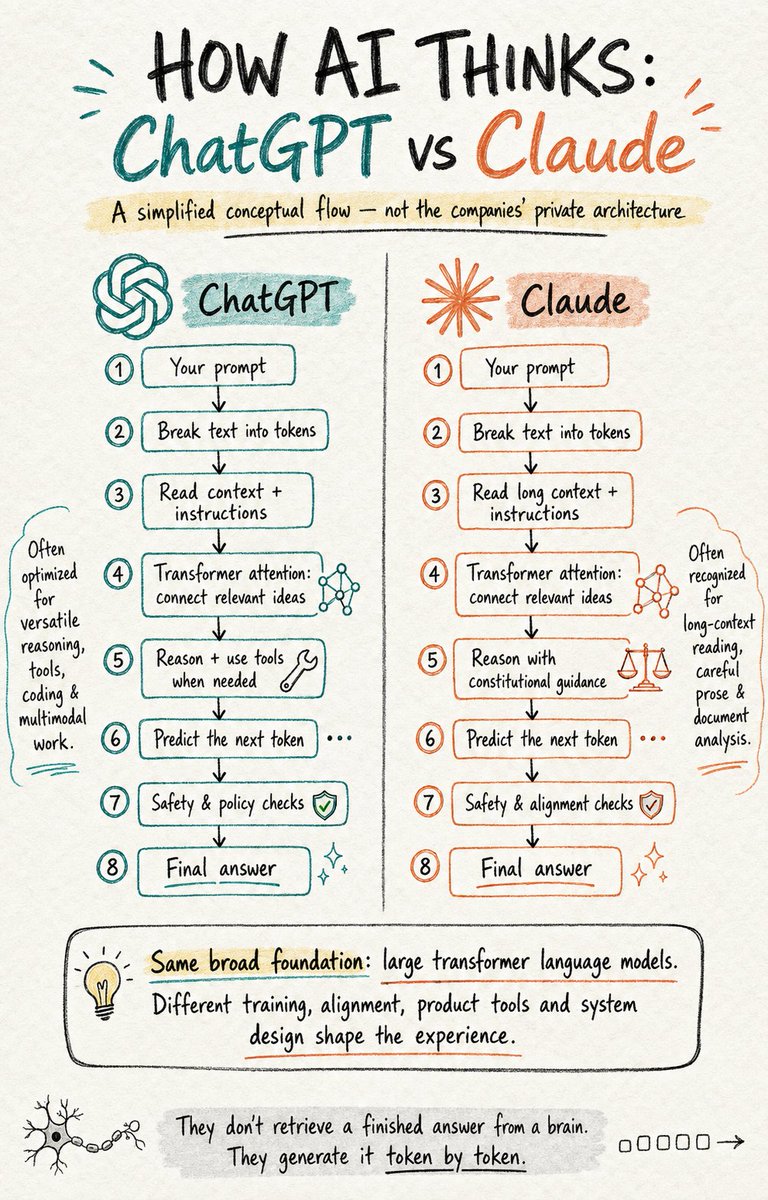 HOW AI THINKS:
ChatGPT vs Claude
A simplified conceptual flow — not the companies' private architecture
ChatGPT
1 Your prompt
2 Break text into tokens
3 Read context +
instructions
4 Transformer attention:
connect relevant ideas
5 Reason + use tools
when needed
6 Predict the next token
7 Safety & policy checks
8 Final answer
Often
optimized
for
versatile
reasoning,
tools,
coding &
multimodal
work.
Claude
1 Your prompt
2 Break text into tokens
3 Read long context +
instructions
4 Transformer attention:
connect relevant ideas
5 Reason with
constitutional guidance
6 Predict the next token
7 Safety & alignment checks
8 Final answer
Often
recognized
for
long-context
reading,
careful
prose &
document
analysis.
Same broad foundation: large transformer language models.
Different training, alignment, product tools and system
design shape the experience.
They don't retrieve a finished answer from a brain.
They generate it token by token.